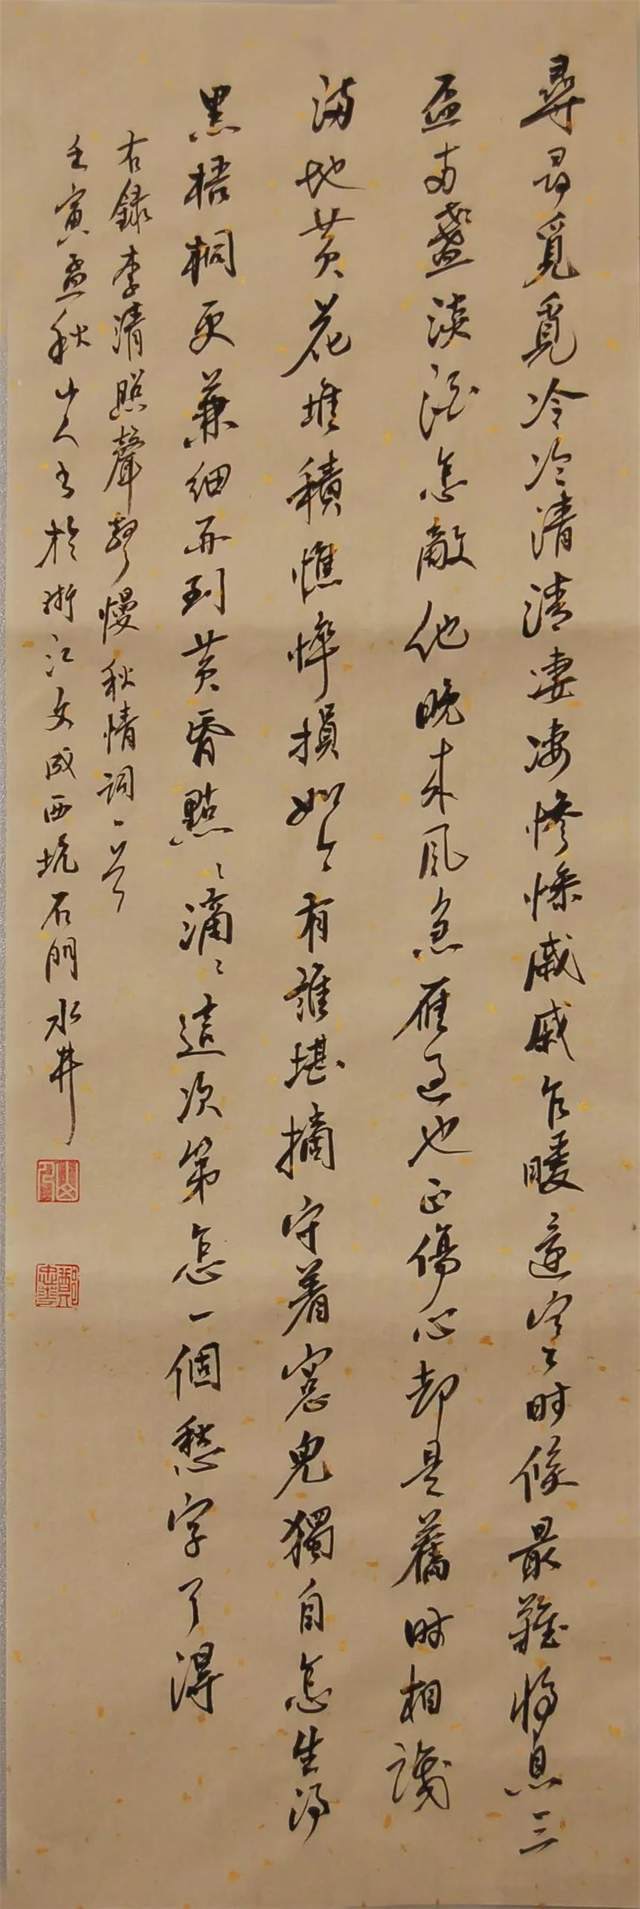 尋尋覓覓冷冷清清淒淒慘慘戚戚乍暖還寒時候最難將息三
盃兩盞淡酒怎敵他晚來風急雁過也正傷心却是舊時相識
滿地黃花堆積憔悴損如今有誰堪摘守着窓兒獨自怎生得
黑梧桐更兼細雨到黃昏點〻滴〻這次第怎一個愁字了得
右錄李清照聲聲慢秋情詞一首
壬寅孟秋山人書於浙江文成西坑石門水井